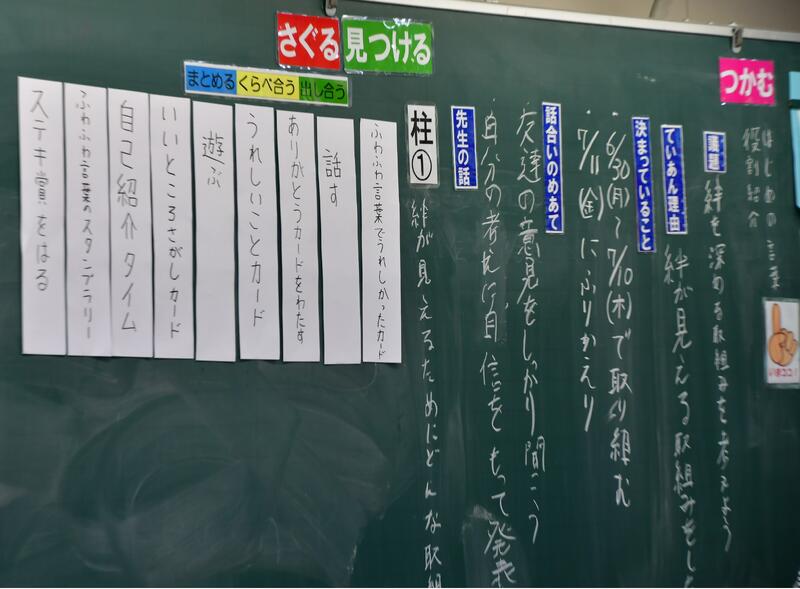 つかむ
はじめの言葉
役割紹介
いまココ!
議題
絆を深める取組みを考えよう
ていあん理由
絆が見える取組みをした
決まっていること
・6/30(月)~7/10(木)で取り組む
・7/11(金)にふりかえり
話合いのめあて
・友達の意見をしっかり聞こう
・自分の考えに自信をもって発表
先生の話
さぐる
見つける
まとめる
くらべ合う
出し合う
柱①
絆が見えるためにどんな取組
ふわふわ言葉でうれしかったカード
話す
ありがとうカードをわたす
うれしいことカード
遊ぶ
いいところさがしカード
自己紹介タイム
ふわふわ言葉のスタンプラリー
ステキ賞をはる